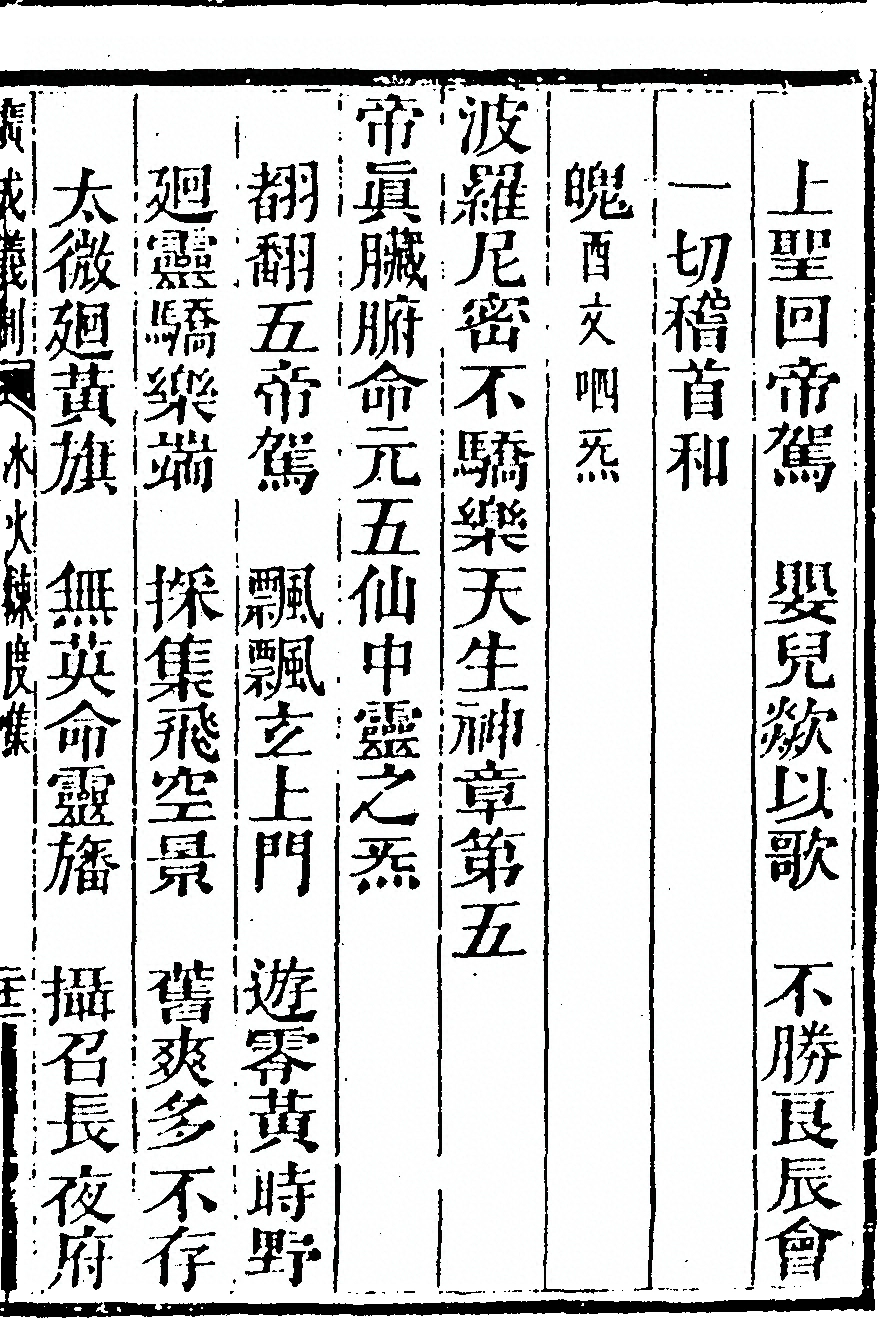 上聖回帝駕　嬰兒歘以歌　不勝良辰會
一切稽首和
䰟酉文呬炁
波羅尼密不驕樂天生神章第五
帝眞臟腑命元五仙中靈之炁
翻翻五帝駕　飄飄玄上門　遊零黃時野
廻靈驕樂端　採集飛空景　舊爽多不存
太微廻黃旗　無英命靈旛　攝召長夜府
廣成儀制　水火鍊度集